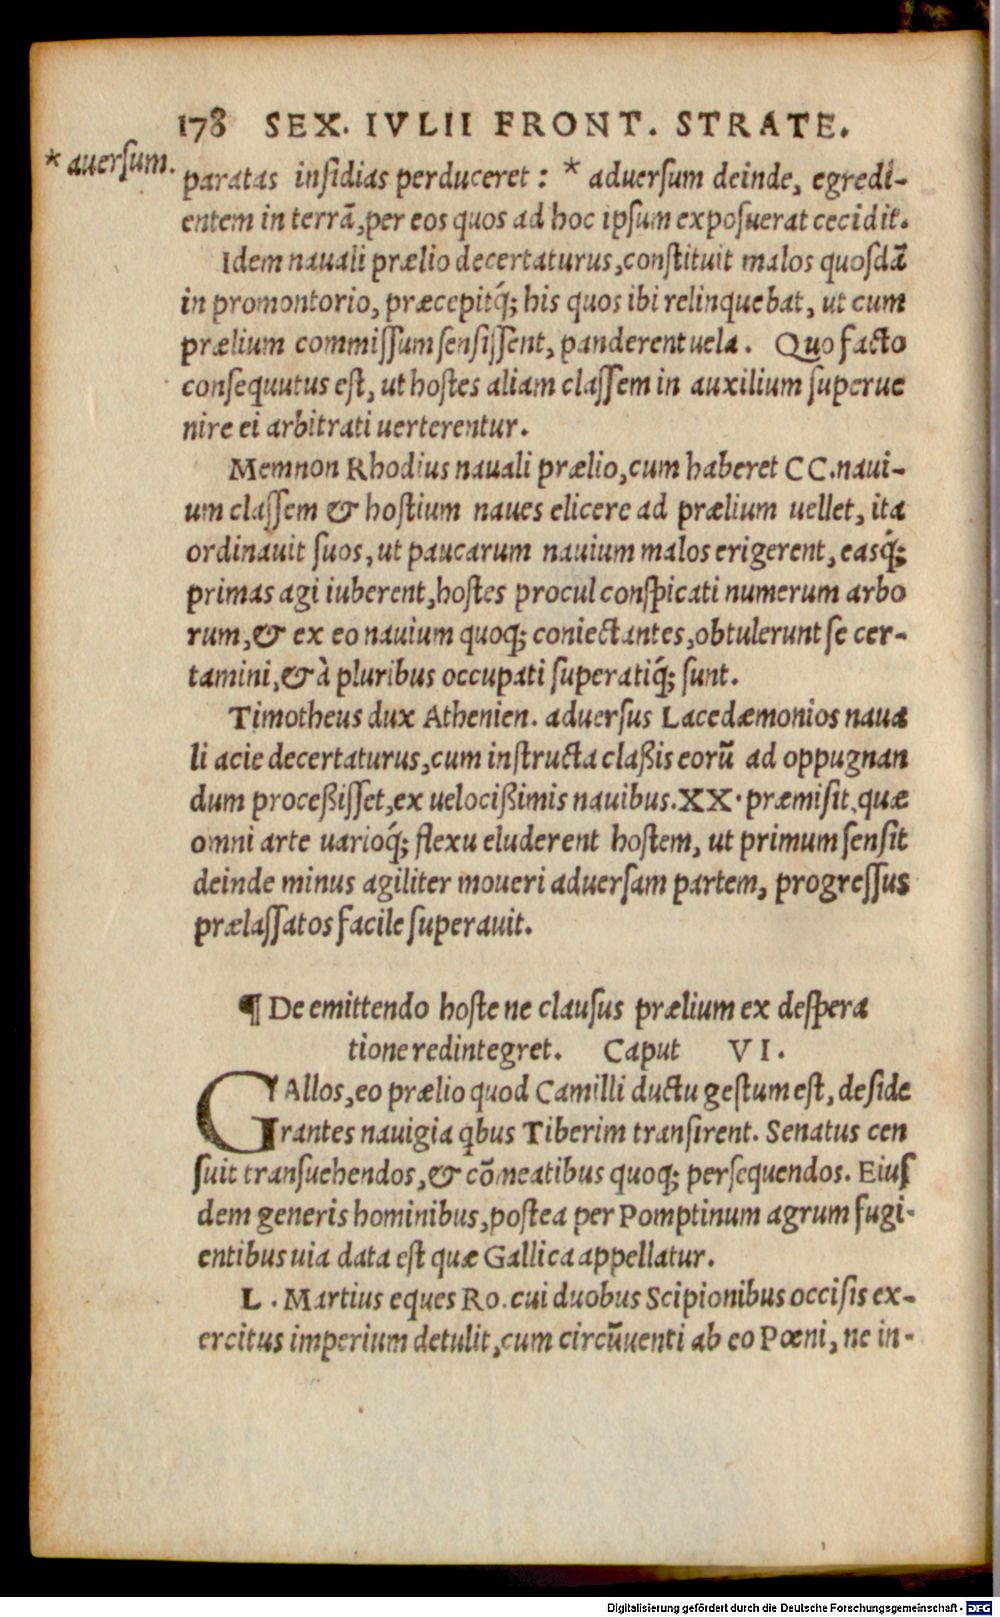 178 SEX. IVLII FRONT. STRATE.
* auerſum.
paratas inſidias perduceret : * aduerſum deinde, egredi-
entem in terrã, per eos quos ad hoc ipſum expoſuerat cecidit.
Idem nauali prælio decertaturus, conſtituit malos quoſdã
in promontorio, præcepitq́; his quos ibi relinquebat, ut cum
prælium commiſſum ſenſiſſent, panderent uela. Quo facto
conſequutus eſt, ut hoſtes aliam claſſem in auxilium ſuperue
nire ei arbitrati uerterentur.
Memnon Rhodius nauali prælio, cum haberet CC. naui-
um claſſem & hoſtium naues elicere ad prælium uellet, ita
ordinauit ſuos, ut paucarum nauium malos erigerent, easq́;
primas agi iuberent, hoſtes procul conſpicati numerum arbo
rum, & ex eo nauium quoq; coniectantes, obtulerunt ſe cer-
tamini, & à pluribus occupati ſuperatiq́; ſunt.
Timotheus dux Athenien. aduerſus Lacedæmonios naua
li acie decertaturus, cum inſtructa claßis eorũ ad oppugnan
dum proceßiſſet, ex uelocißimis nauibus. XX. præmiſit, quæ
omni arte uarioq́; flexu eluderent hoſtem, ut primum ſenſit
deinde minus agiliter moueri aduerſam partem, progreſſus
prælaſſatos facile ſuperauit.
¶ De emittendo hoſte ne clauſus prælium ex deſpera
tione redintegret. Caput VI.
GAllos, eo prælio quod Camilli ductu geſtum eſt, deſide
rantes nauigia qbus Tiberim tranſirent. Senatus cen
ſuit tranſuehendos, & cõmeatibus quoq; perſequendos. Eiuſ
dem generis hominibus, poſtea per Pomptinum agrum fugi-
entibus uia data eſt quæ Gallica appellatur.
L. Martius eques Ro. cui duobus Scipionibus occiſis ex-
ercitus imperium detulit, cum circũuenti ab eo Pœni, ne in-
Digitalisierung gefördert durch die Deutsche Forschungsgemeinschaft - DFG